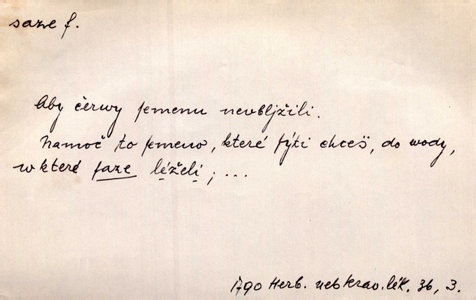 saze f.
Aby čerwy semenu neubljžili.
Namoč to semeno, které sýti chceš, do wody,
w které saze léželi; ...
1790 Herb. neb krav. lék. 36, 3.